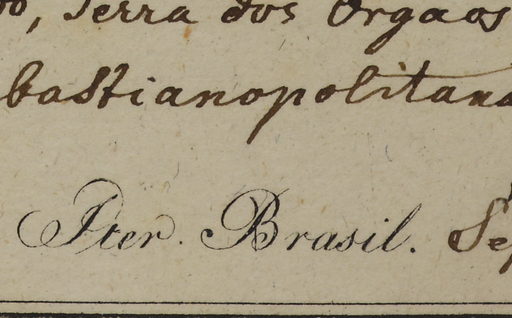 Serra dos Orgaos
bastianopolitana
Iter. Brasil. Sep